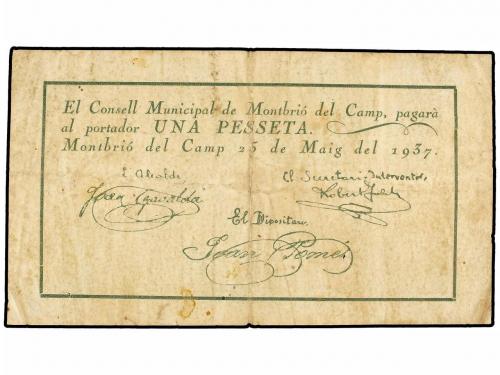 El Consell Municipal de Montbrió del Camp, pagarà
al portador UNA PESSETA.
Montbrió del Camp 25 de Maig del 1937.
L'Alcalde El Secretari-Interventor,
Joan Robert
El Dipositari
Joan Romés